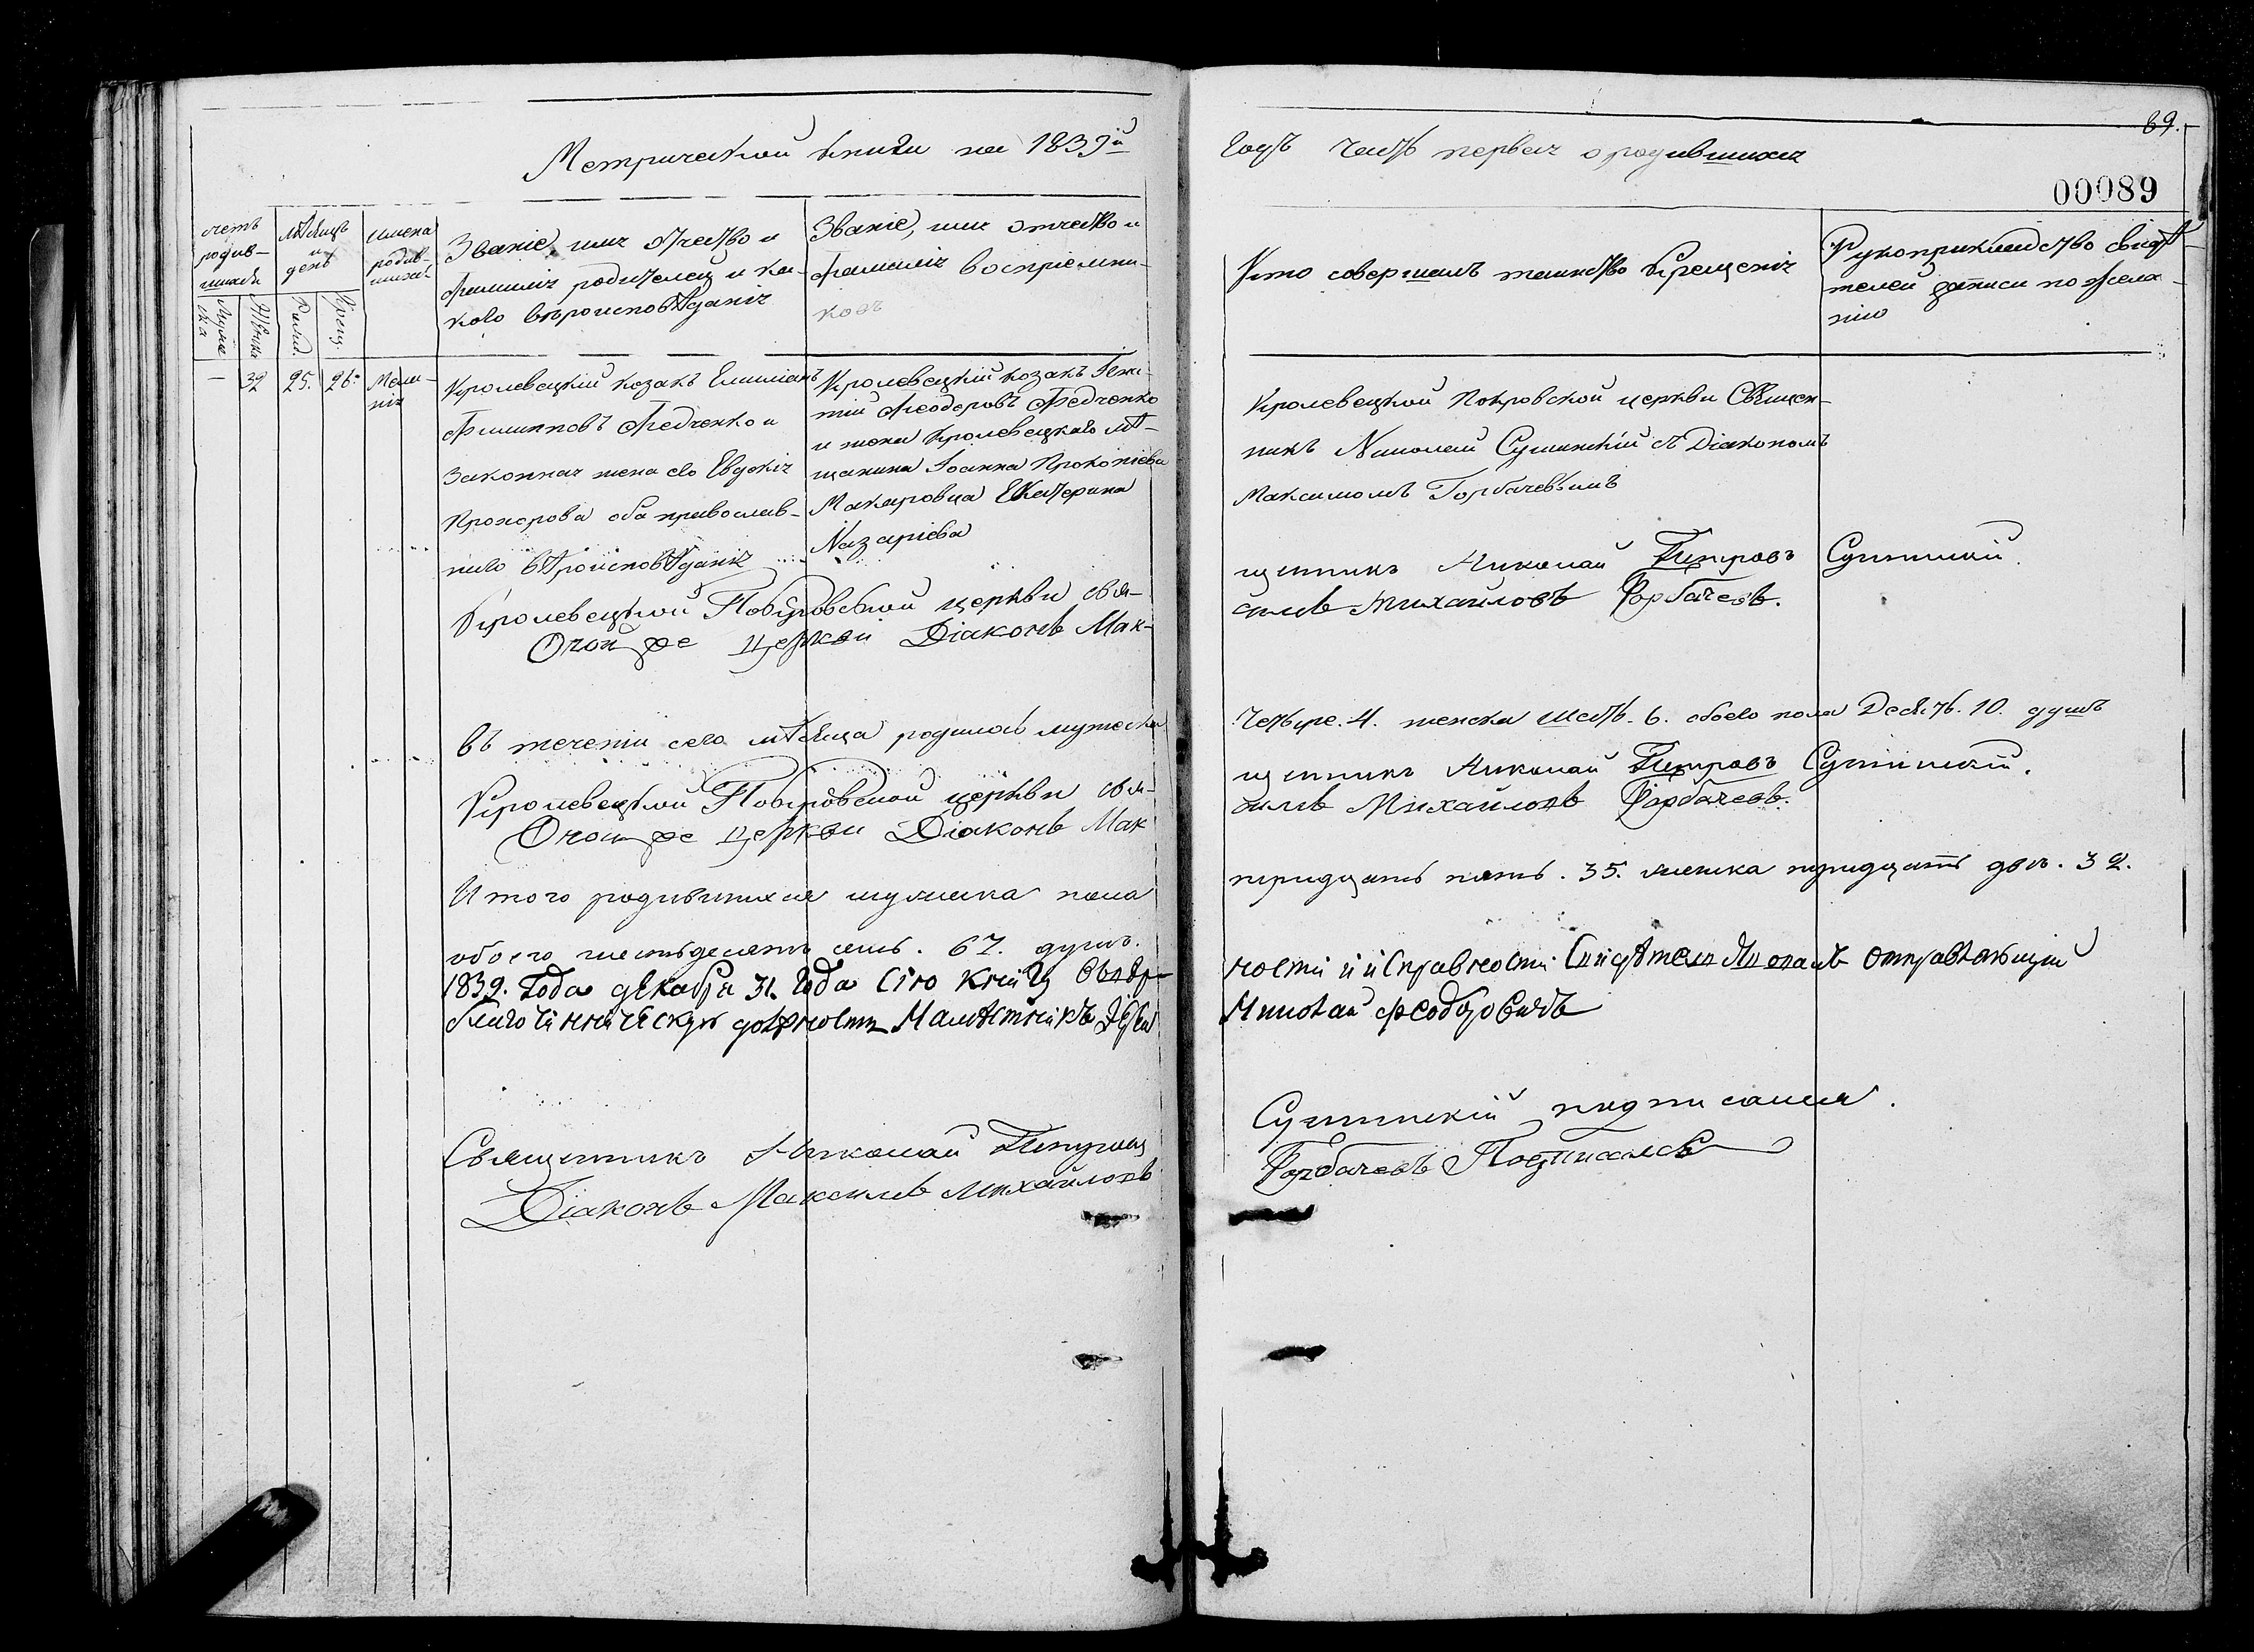 Метрической книги на 1839й
годъ часть первая о родившихся
89.
00089
счетъ родив-шихся
мѣсяцъ и день
имена родив-шихся
Званіе, имя отчество и
фамилія родителей и ка-
кого вѣроисповѣданія
Званіе, имя отчество и
фамилія воспріемни-
ковъ
Кто совершалъ таинство крещенія
Рукоприкладство свидѣ-
телей записи по жела-
нію
Мужеска
Женска
Рожд.
Крещ.
— 32 25. 26. Мела-
нія
Кролевецкій козакъ Емиліанъ
Филипповъ Федченко и
законная жена его Евдокія
Прохорова оба православ-
наго вѣроисповѣданія
Кролевецкій козакъ
Феодоровъ Федченко
и жена Кролевецкаго мѣ-
щанина Іоанна Прокопіева
Макаровца Екатерина
Назаріева
Кролевецкой Покровской церкви Священ-
никъ Николай Сушинскій съ Діакономъ
Максимомъ Горбачевымъ
Кролевецкой Покровской церкви свя-
щенникъ Николай Петровъ Сушинскій.
Оной же церкви Діаконъ Мак-
симъ Михайловъ Горбачевъ.
Въ теченіи сего мѣсяца родилось мужеска
четыре. 4. женска шесть. 6. обоего пола десять. 10. душъ
Кролевецкой Покровской церкви свя-
щенникъ Николай Петровъ Сушинскій.
Оной же церкви Діаконъ Мак
симъ Михайловъ Горбачевъ.
Итого родившихся мужеска пола
тридцать пять. 35. женска тридцать два. 32.
обоего шестьдесятъ семь. 67. душъ.
1839. Года декабря 31. Года сію книгу вѣдр-
ности и исправности отправляющій
благочинническую должность Намѣстникъ
Феодоровичъ
Священникъ Николай Петровъ
Сушинскій подписался.
Діаконъ Максимъ Михайловъ
Горбачевъ Подписался